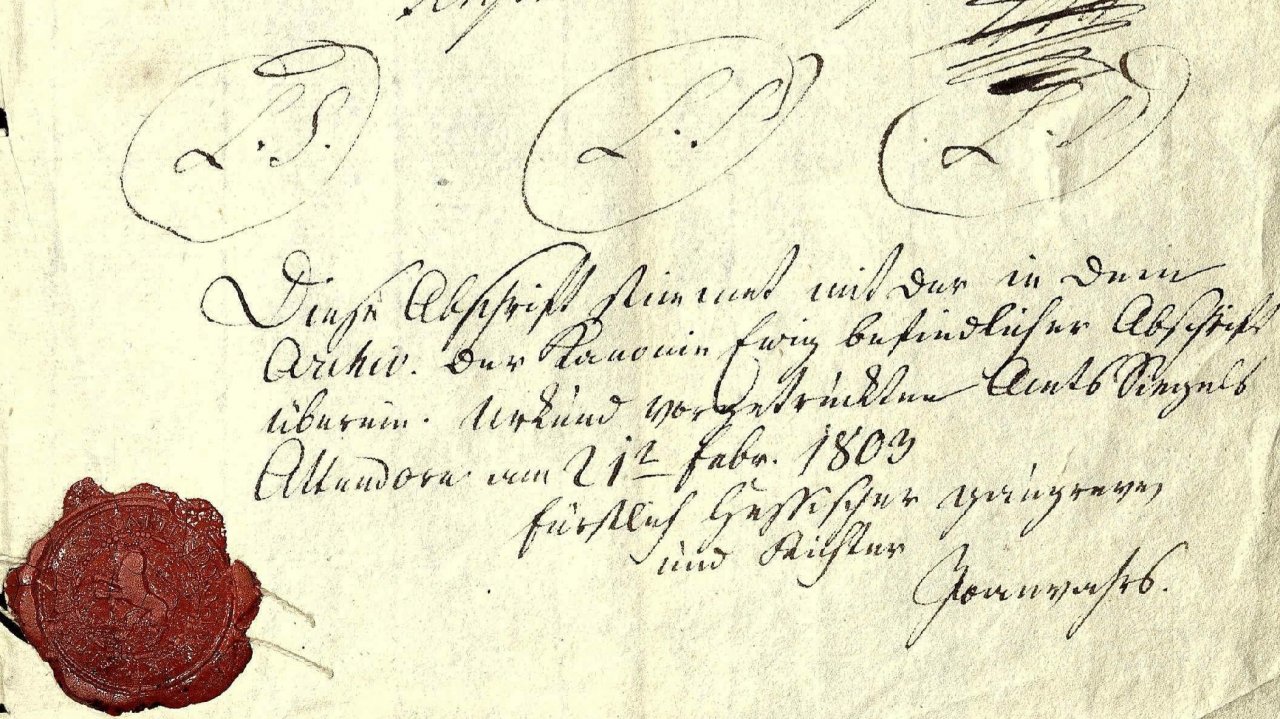 L. S. L. S. L. S.
Diese Abschrift stimmet mit der in dem
Archiv. der Kanonie Ewig befindlicher Abschrift
überein. Urkund vorgetruckten Amts Siegels
Attendorn am 21t Febr. 1803
Fürstlich Hessischer gaugreve
und Richter